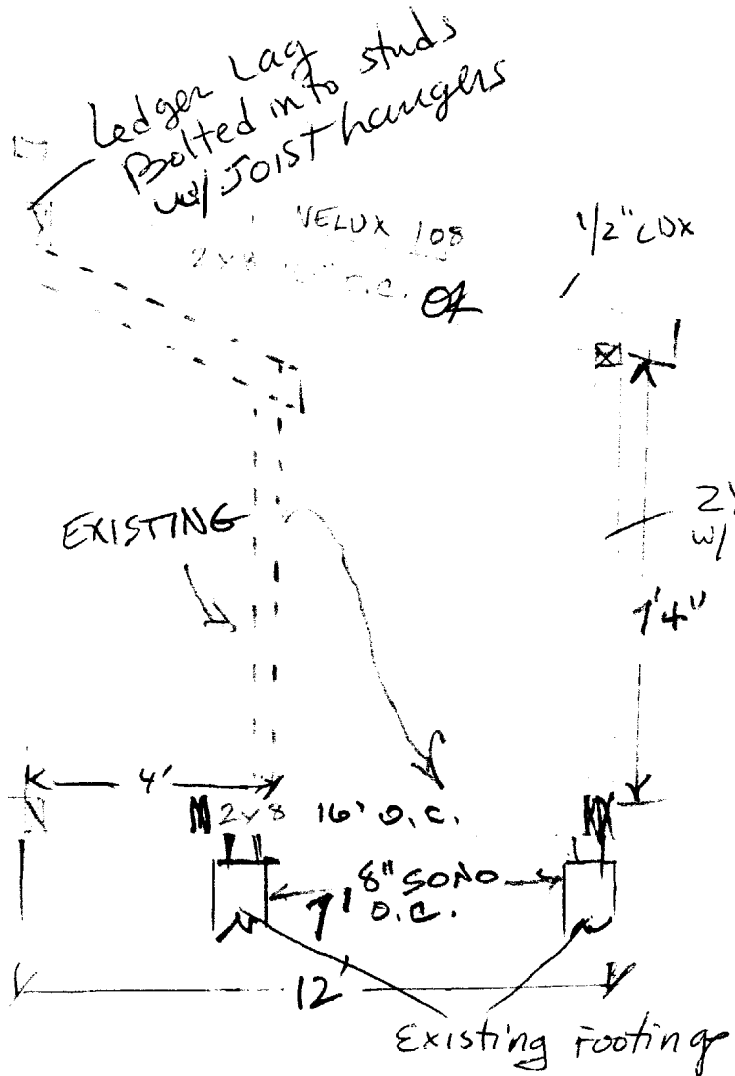 Ledger Lag
Bolted into studs
w/ JOIST hangers
VELUX 108
2x8 O.C. OK
1/2" CDX
EXISTING
2
w/
7'4"
4'
2x8 16" O.C.
8" SONO
7' O.C.
12'
Existing Footings